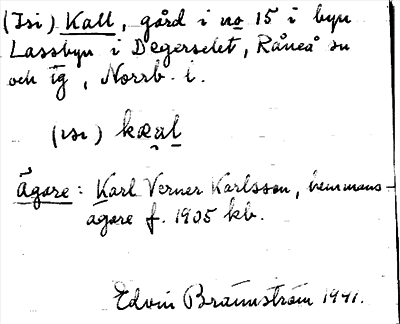 (Isi) Kall, gård i no 15 i byn
Lassbyn i Degerselet, Råneå sn
och tg, Norrb. l.
(ısı) kæal
Ägare: Karl Verner Karlsson, hemmans-
ägare f. 1905 kb.
Edvin Brännström 1941.